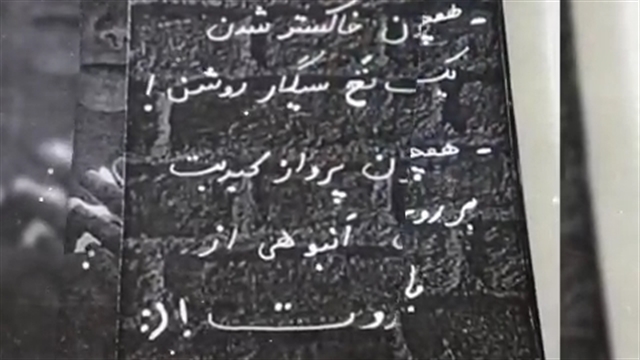 - همچون خاکستر شدن
یک نخ سیگار روشن!
- همچون پرواز کبریت
بر روی
انبوهی از
باروت!(: